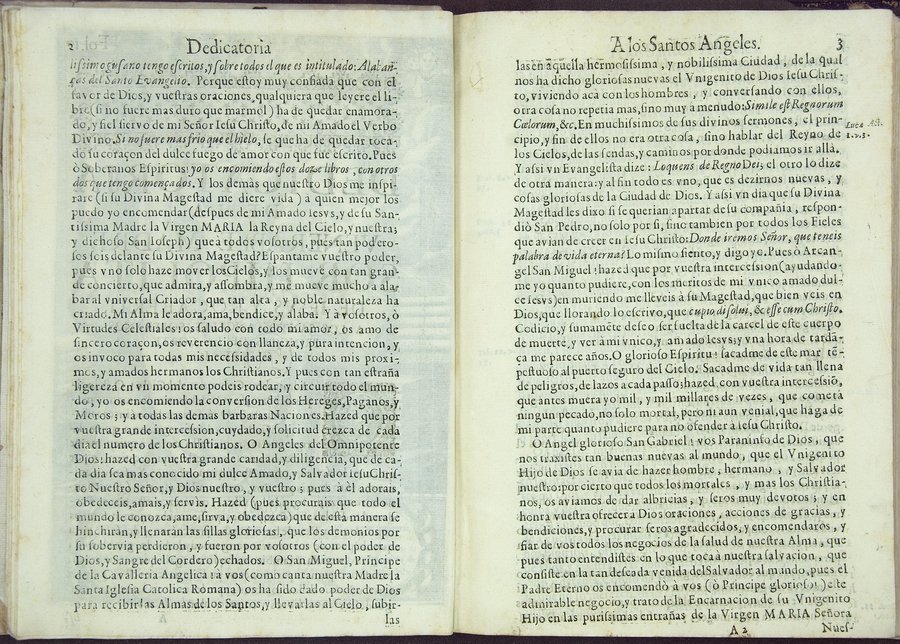 2 Dedicatoria
lissimo gusano tengo escritos, y sobre todos el que es intitulado: Alaban-
ças del Santo Evangelio. Porque estoy muy confiada que con el
favor de Dios, y vuestras oraciones, qualquiera que leyere el li-
bro (si no fuere mas duro que marmol) ha de quedar enamora-
do, y fiel siervo de mi Señor Iesu Christo, de mi Amado el Verbo
Divino. Si no fuere mas frio que el hielo, se que ha de quedar toca-
do su coraçon del dulce fuego de amor con que fue escrito. Pues
ò Soberanos Espiritus! yo os encomiendo estos doze libros, con otros
dos que tengo començados. Y los demás que nuestro Dios me inspi-
rare (si su Divina Magestad me diere vida) a quien mejor los
puedo yo encomendar (despues de mi Amado Iesvs, y de su San-
tissima Madre la Virgen MARIA la Reyna del Cielo, y nuestra;
y dichoso San Ioseph) que à todos vosotros, pues tan podero-
sos seis delante su Divina Magestad? Espantame vuestro poder,
pues vno solo haze mover los Cielos, y los mueve con tan gran-
de concierto, que admira, y assombra, y me mueve mucho a ala-
bar al vniversal Criador, que tan alta, y noble naturaleza ha
criado. Mi Alma le adora, ama, bendice, y alaba. Y à vosotros, ò
Virtudes Celestiales! os saludo con todo mi amor, os amo de
sincero coraçon, os reverencio con llaneza, y pura intencion, y
os invoco para todas mis necessidades, y de todos mis proxi-
mos, y amados hermanos los Christianos. Y pues con tan estraña
ligereza en vn momento podeis rodear, y circuir todo el mun-
do, yo os encomiendo la conversion de los Hereges, Paganos, y
Moros; y a todas las demas barbaras Naciones. Hazed que por
vuestra grande intercession, cuydado, y solicitud crezca de cada
dia el numero de los Christianos. O Angeles del Omnipotente
Dios! hazed con vuestra grande caridad, y diligencia, que de ca-
da dia sea mas conocido mi dulce Amado, y Salvador Iesu Chris-
to Nuestro Señor, y Dios nuestro, y vuestro; pues à él adorais,
obedeceis, amais, y servis. Hazed (pues procurais que todo el
mundo le conozca, ame, sirva, y obedezca) que de esta manera se
hinchirán, y llenarán las sillas gloriosas, que los demonios por
su sobervia perdieron, y fueron por vosotros (con el poder de
Dios, y Sangre del Cordero) echados. O San Miguel, Principe
de la Cavalleria Angelica! a vos (como canta nuestra Madre la
Santa Iglesia Catolica Romana) os ha sido dado poder de Dios
para recibir las Almas de los Santos, y llevarlas al Cielo, subir-
las
A los Santos Angeles. 3
las en aquella hermosissima, y nobilissima Ciudad, de la qual
nos ha dicho gloriosas nuevas el Vnigenito de Dios Iesu Chris-
to, viviendo acà con los hombres, y conversando con ellos,
otra cosa no repetia mas, sino muy à menudo: Simile est Regnorum
Cœlorum, &c. En muchissimos de sus divinos sermones, el prin-
cipio, y fin de ellos no era otra cosa, sino hablar del Reyno de
los Cielos, de las sendas, y caminos por donde podiamos ir allà.
Y assi vn Evangelista dize: Loquens de Regno Dei; el otro lo dize
de otra manera: y al fin todo es vno, que es dezirnos nuevas, y
cosas gloriosas de la Ciudad de Dios. Y assi vn dia que su Divina
Magestad les dixo si se querian apartar de su compañia, respon-
diò San Pedro, no solo por si, sino tambien por todos los Fieles
que avian de creer en Iesu Christo: Donde iremos Señor, que teneis
palabra de vida eterna? Lo mismo siento, y digo yo. Pues ò Arcan-
gel San Miguel! hazed que por vuestra intercession (ayudando-
me yo quanto pudiere, con los meritos de mi vnico amado dul-
ce Iesvs) en muriendo me lleveis à su Magestad, que bien veis en
Dios, que llorando lo escrivo, que cupio disolui, & esse cum Christo.
Codicio, y sumamẽte deseo ser suelta de la carcel de este cuerpo
de muerte, y ver à mi vnico, y amado Iesvs; y vna hora de tardã-
ça me parece años. O glorioso Espiritu! sacadme de este mar tẽ-
pestuoso al puerto seguro del Cielo. Sacadme de vida tan llena
de peligros, de lazos a cada passo; hazed con vuestra intercessiõ,
que antes muera yo mil, y mil millares de vezes, que cometa
ningun pecado, no solo mortal, pero ni aun venial, que haga de
mi parte quanto pudiere para no ofender à Iesu Christo.
O Angel glorioso San Gabriel! vos Paraninfo de Dios, que
nos traxistes tan buenas nuevas al mundo, que el Vnigenito
Hijo de Dios se avia de hazer hombre, hermano, y Salvador
nuestro: por cierto que todos los mortales, y mas los Christia-
nos, os aviamos de dar albricias, y seros muy devotos; y en
honra vuestra ofrecer a Dios oraciones, acciones de gracias, y
bendiciones, y procurar seros agradecidos, y encomendaros, y
fiar de vos todos los negocios de la salud de nuestra Alma, que
pues tanto entendistes en lo que toca à nuestra salvacion, que
consiste en la tan deseada venida del Salvador al mundo, pues el
Padre Eterno os encomendò à vos (ò Principe glorioso!) este
admirable negocio, y trato de la Encarnacion de su Vnigenito
Hijo en las purissimas entrañas de la Virgen MARIA Señora
A 2 Nues-
Luca Act.
1. v. 3.